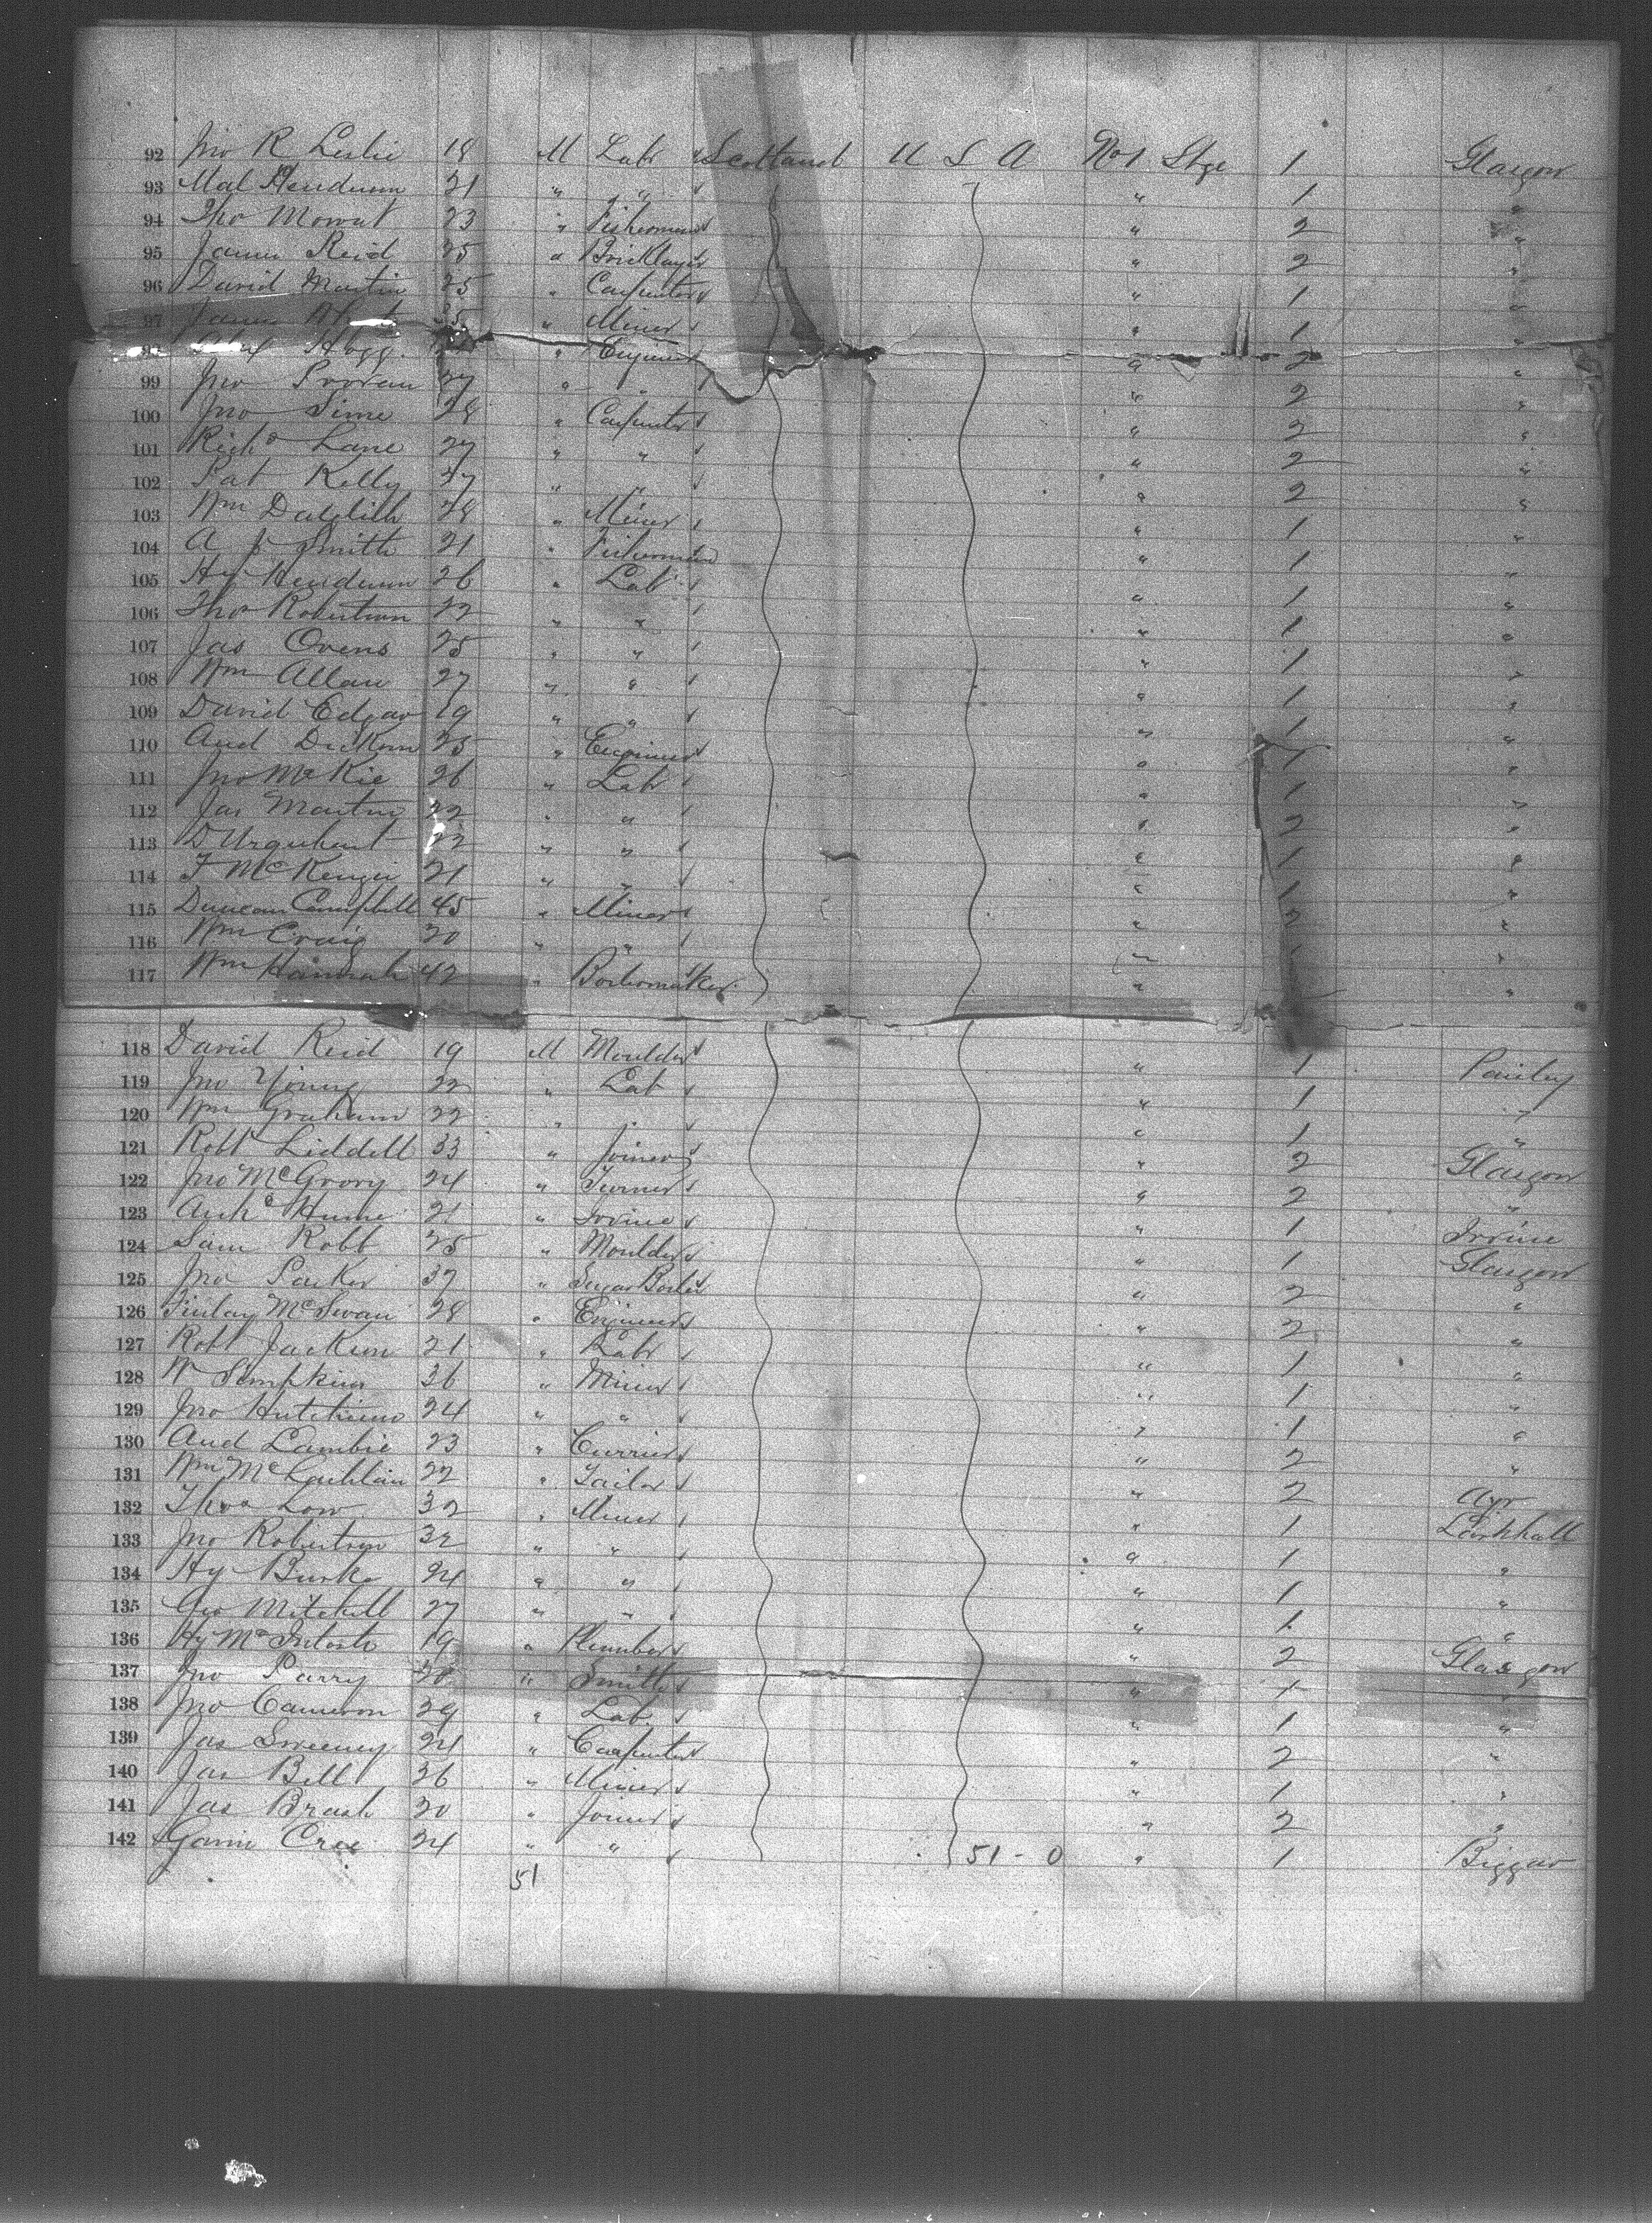 92 Jno R Leslie 18 M Labr Scotland U S A No 1 Stge 1 Glasgow
93 Mal Henderson 21 " " " 1 "
94 Tho Mowat 23 " Fisherman " 2 "
95 James Reid 25 " Bricklayer " 2 "
96 David Martin 25 " Carpenter " 1 "
97 James " Miner " 1 "
Hogg " Engineer " 2 "
99 Jno 27 " " " 2 "
100 Jno Sime 28 " Carpenter " 2 "
101 Richd Lane 27 " " " 2 "
102 Pat Kelly 37 " " " 2 "
103 Wm Dalglith 28 " Miner " 1 "
104 A J Smith 21 " Fisherman " 1 "
105 Hy Henderson 26 " Labr " 1 "
106 Tho Robertson 22 " " " 1 "
107 Jas Ovens 25 " " " 1 "
108 Wm Allan 27 " " " 1 "
109 David Edgar 19 " " " 1 "
110 And Dickson 25 " Engineer " 1 "
111 Jno McKie 26 " Labr " 1 "
112 Jas Martin 22 " " " 2 "
113 D Urquhart 22 " " " 1 "
114 F McKenzie 21 " " " 1 "
115 Duncan Campbell 45 " Miner " 2 "
116 Wm Craig 30 " " " "
117 Wm Hannah 42 " Boilermaker " "
118 David Reid 19 M Moulder " 1 Paisley
119 Jno Young 22 " Lab " 1 "
120 Wm Graham 22 " " " 1 "
121 Robt Liddell 33 " Joiner " 2 Glasgow
122 Jno McGrory 24 " Turner " 2 "
123 Archd Hume 21 " Irvine " 1 Irvine
124 Sam Robb 25 " Moulder " 1 Glasgow
125 Jno Parker 37 " Sugar Boiler " 2 "
126 Finlay McSwan 28 " Engineer " 2 "
127 Robt Jackson 21 " Labr " 1 "
128 W Simpkins 36 " Miner " 1 "
129 Jno Hutchison 24 " " " 1 "
130 And Lambie 23 " Currier " 2 "
131 Wm McLachlan 22 " Tailor " 2 Ayr
132 Thos Low 32 " Miner " 1 Larkhall
133 Jno Robertson 32 " " " 1 "
134 Hy Burke 24 " " " 1 "
135 Geo Mitchell 27 " " " 1 "
136 Hy McIntosh 19 " Plumber " 2 Glasgow
137 Jno Parry 20 " Smith " 1 "
138 Jno Cameron 39 " Lab " 1 "
139 Jas Sweeney 24 " Carpenter " 2 "
140 Jas Bell 36 " Miner " 1 "
141 Jas Brash 30 " Joiner " 2 "
142 Gavin Cree 24 " " 51 - 0 " 1 Biggar
51